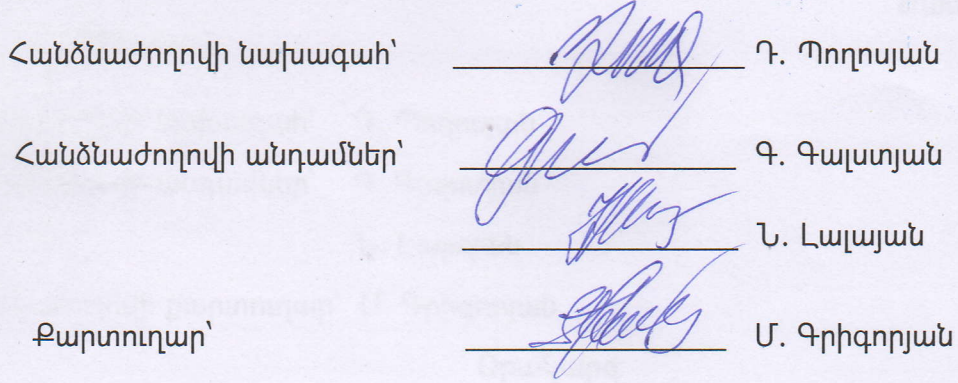 Հանձնաժողովի նախագահ՝ Դ. Պողոսյան
Հանձնաժողովի անդամներ՝ Գ. Գալստյան
Ն. Լալայան
Քարտուղար՝ Մ. Գրիգորյան